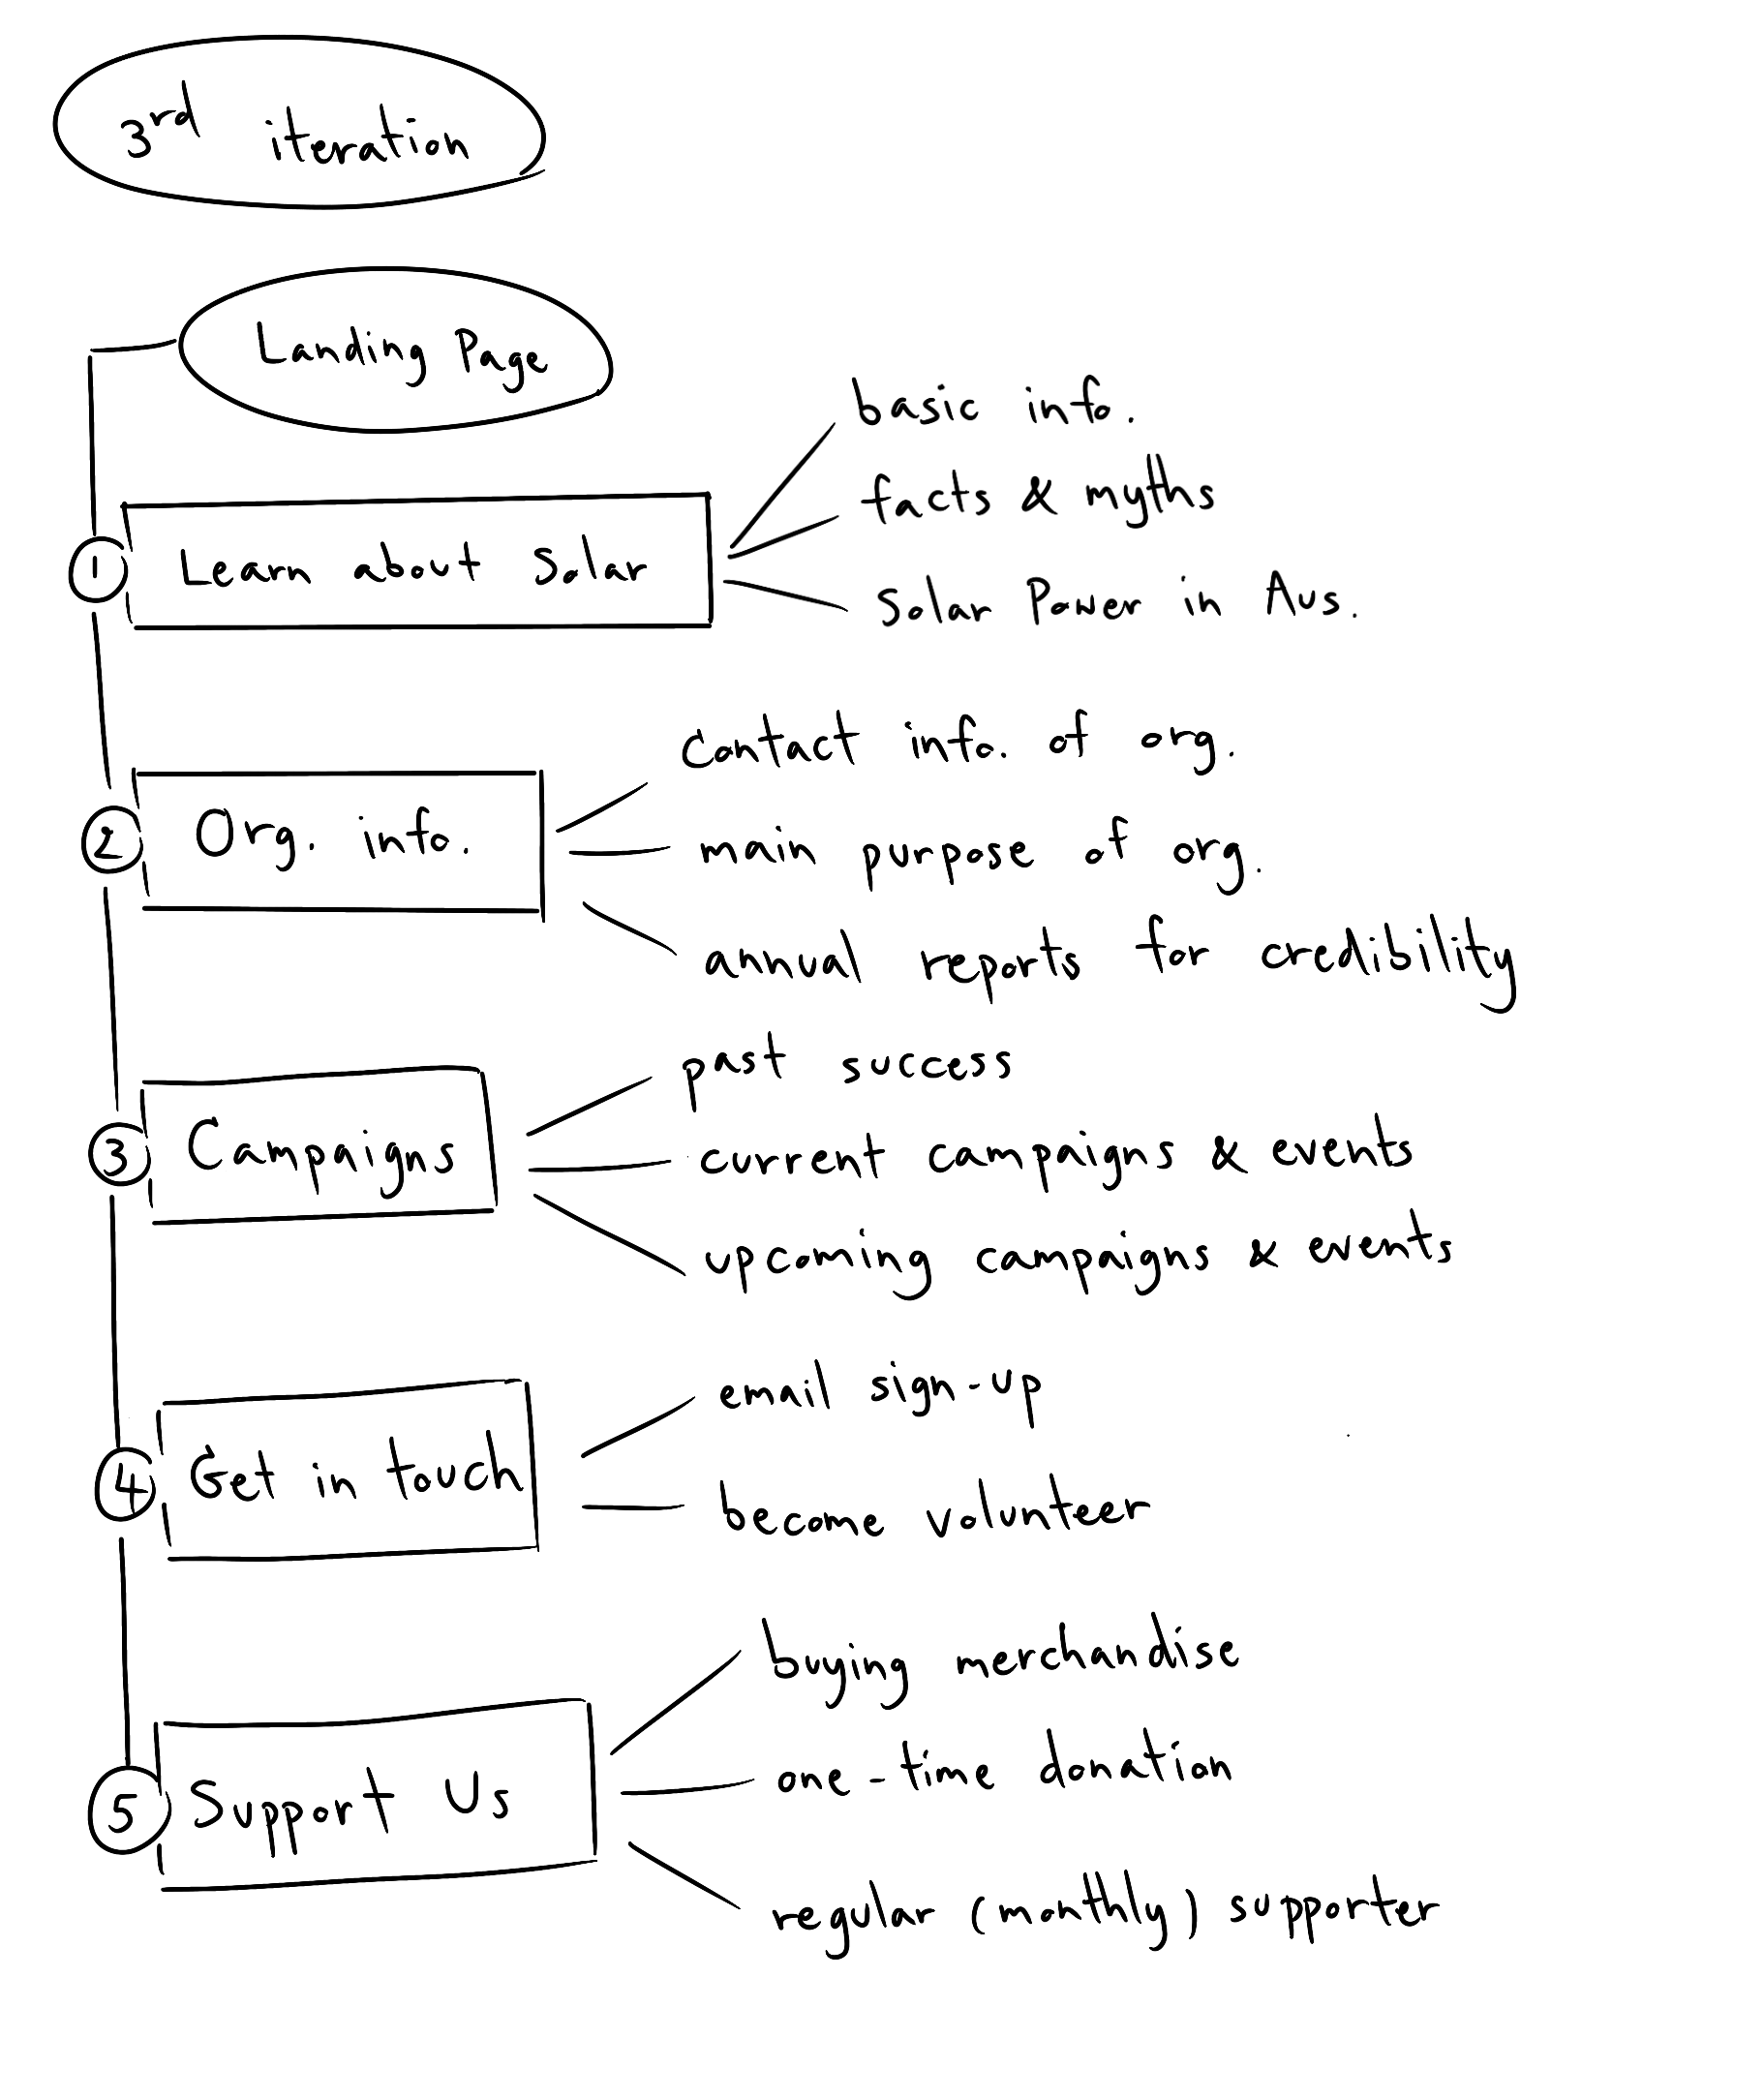 3rd iteration
Landing Page
1 Learn about Solar
basic info.
facts & myths
Solar Power in Aus.
2 Org. info.
Contact info. of org.
main purpose of org.
annual reports for credibility
3 Campaigns
past success
current campaigns & events
upcoming campaigns & events
4 Get in touch
email sign-up
become volunteer
5 Support Us
buying merchandise
one-time donation
regular (monthly) supporter